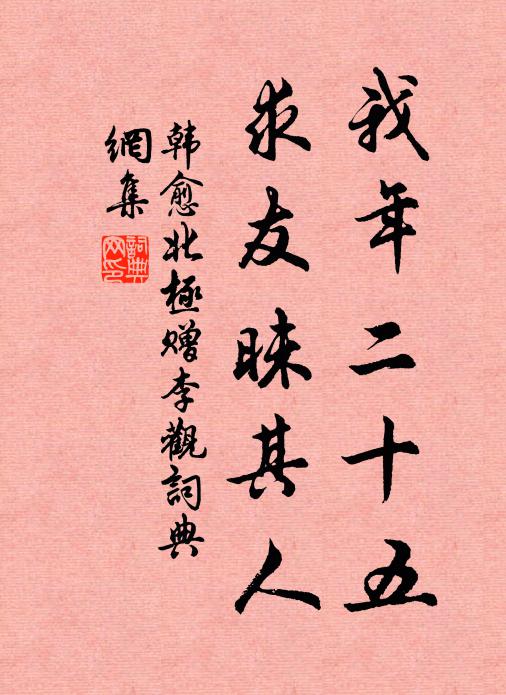 我年二十五
求友昧其人
韩愈北極赠李觀詞典
網集
詞典网印